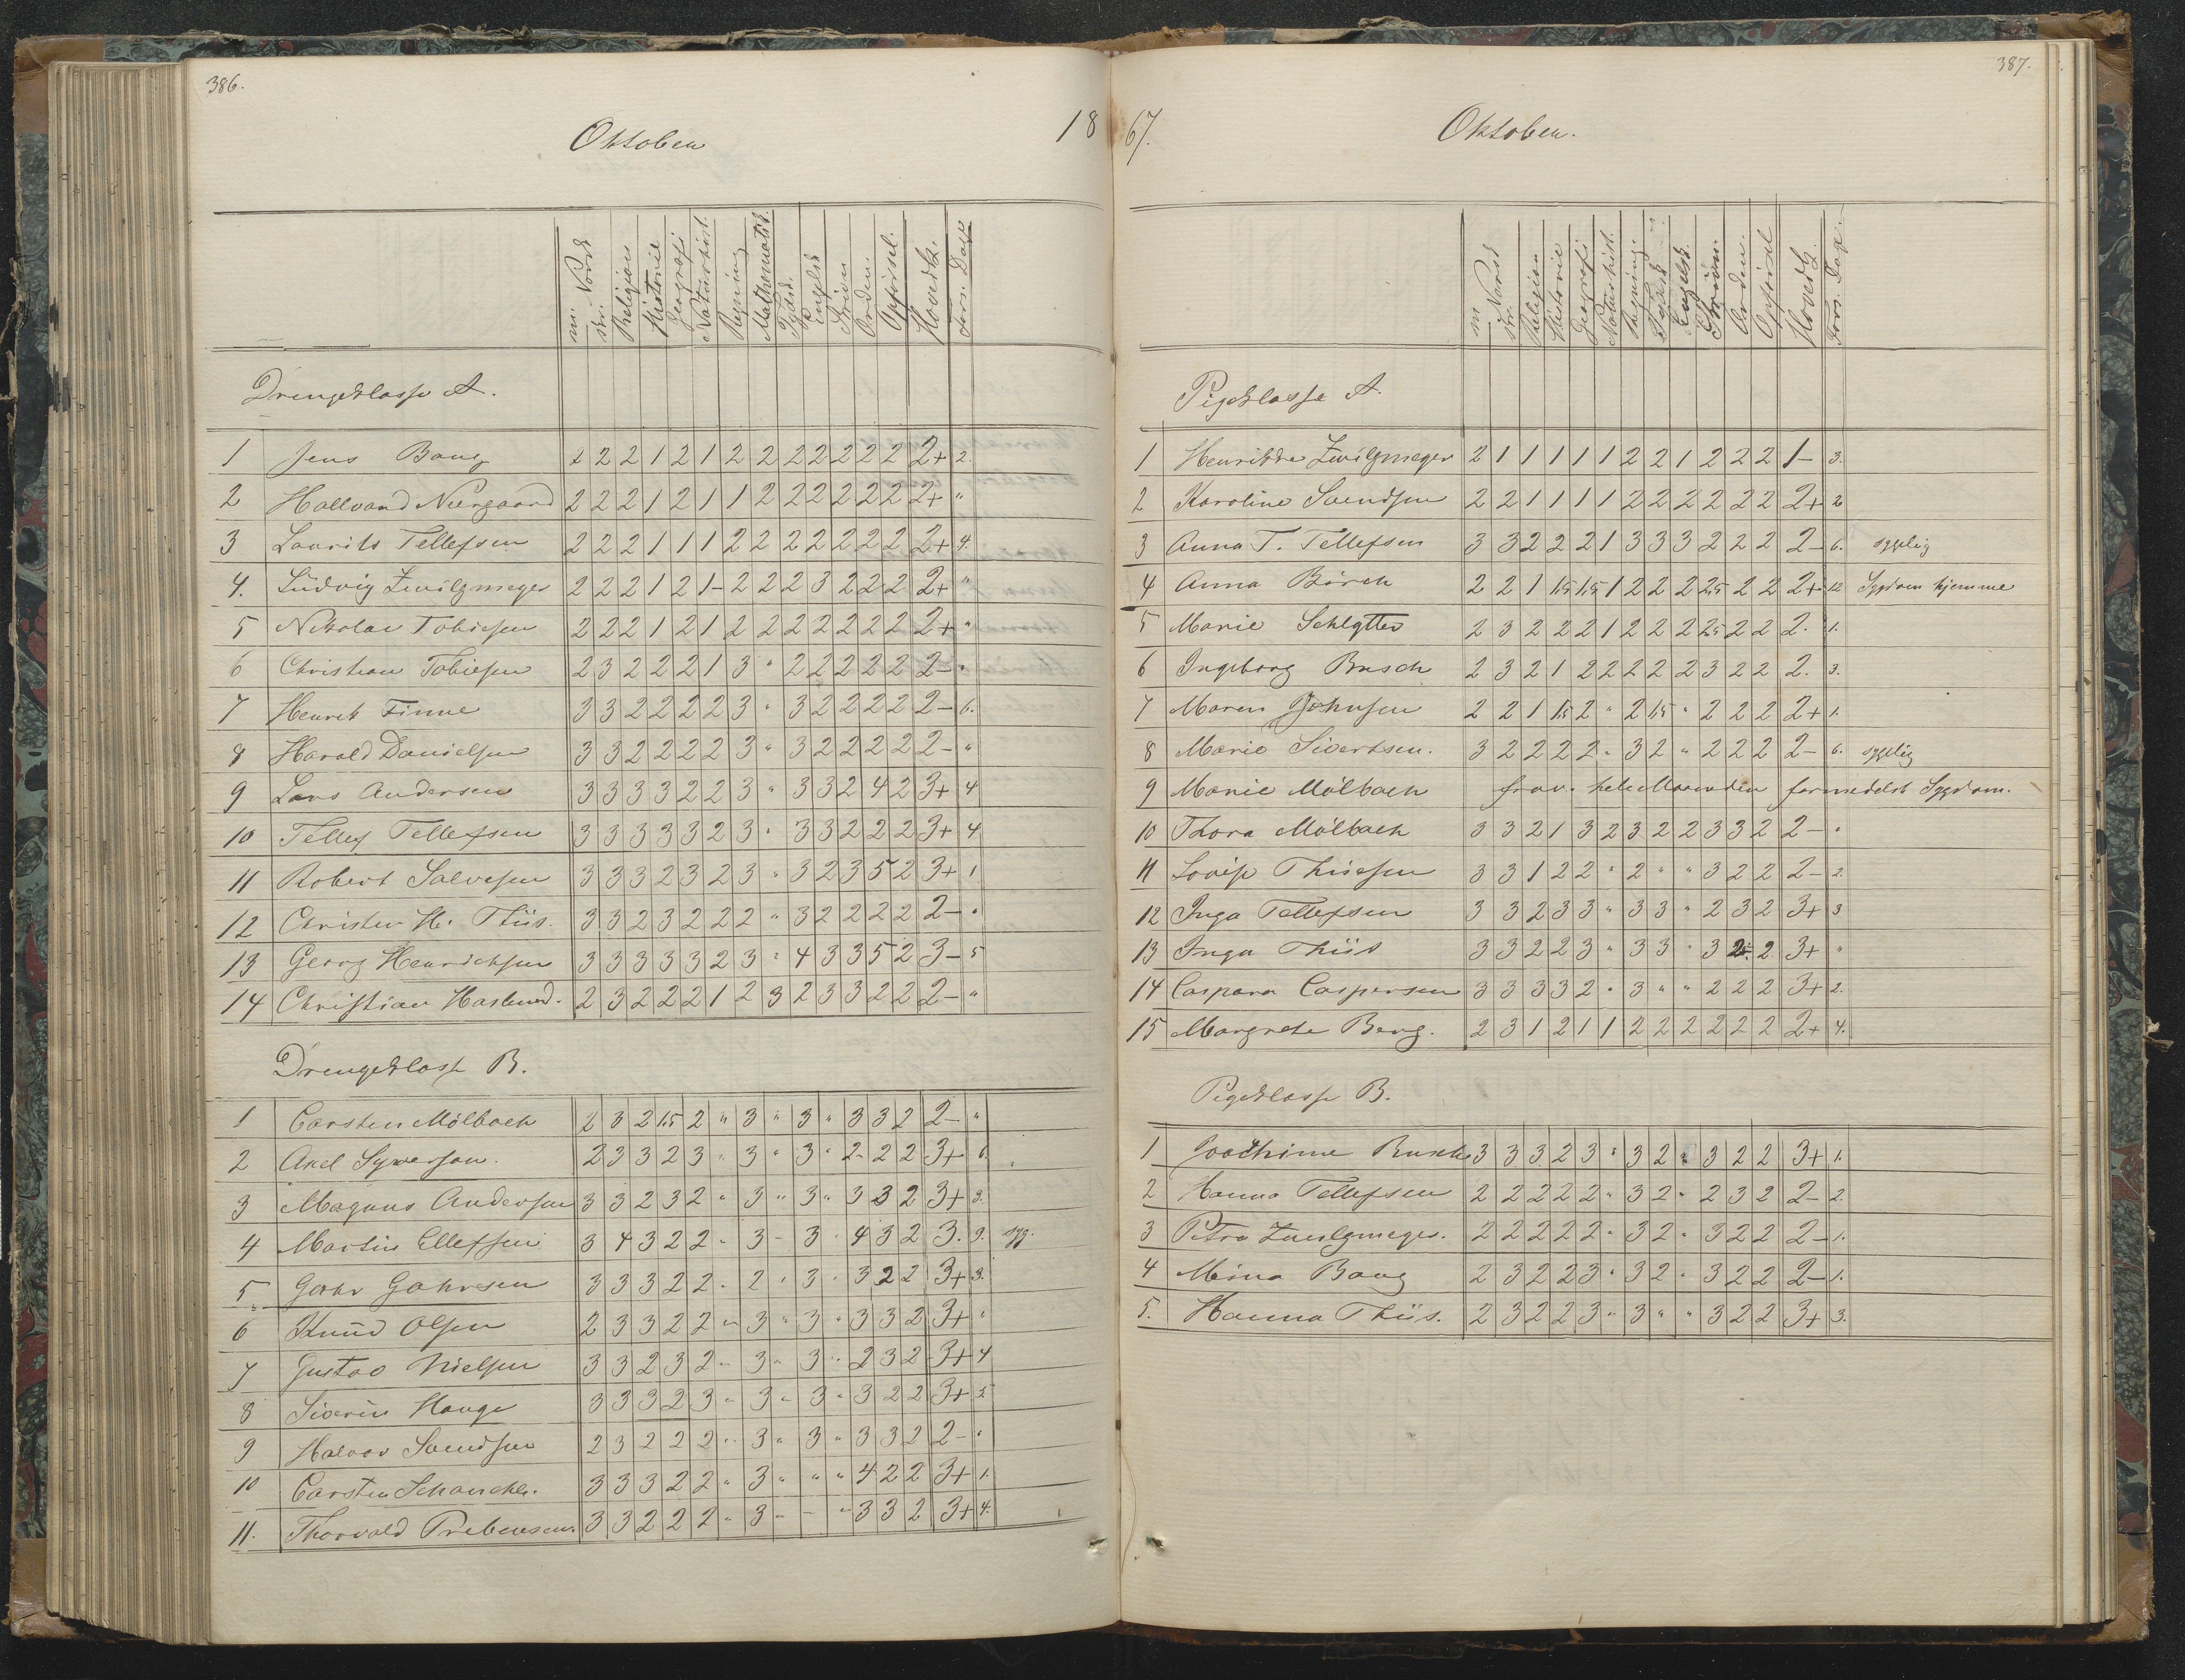 386.
Oktober
18
m: Norsk
skr:
Religion
Historie
Geografi
Naturhist.
Regning
Mathematik
Tydsk.
Engelsk
Skriven
Orden.
Opførsel.
Hovedk.
Fors. Dage
Drengeklasse A.
1 Jens Bang 2 2 2 1 2 1 2 2 2 2 2 2 2 2+ 2.
2 Hallvard Neergaard 2 2 2 1 2 1 1 2 2 2 2 2 2 2+ "
3 Laurits Tellefsen 2 2 2 1 1 1 2 2 2 2 2 2 2 2+ 4.
4. Ludvig Zwilgmeyer 2 2 2 1 2 1- 2 2 2 3 2 2 2 2+ "
5 Nikolai Tobiesen 2 2 2 1 2 1 2 2 2 2 2 2 2 2+ "
6 Christian Tobiesen 2 3 2 2 2 1 3 " 2 2 2 2 2 2- "
7 Henrik Finne 3 3 2 2 2 2 3 " 3 2 2 2 2 2- 6.
8 Harald Danielsen 3 3 2 2 2 2 3 " 3 2 2 2 2 2- "
9 Lars Andersen 3 3 3 3 2 2 3 " 3 3 2 4 2 3+ 4
10 Tellef Tellefsen 3 3 3 3 3 2 3 " 3 3 2 2 2 3+ 4
11 Robert Salvesen 3 3 3 2 3 2 3 " 3 2 3 5 2 3+ 1
12 Christen H. Thiis. 3 3 2 3 2 2 2 " 3 2 2 2 2 2- "
13 Georg Henrichsen 3 3 3 3 3 2 3 " 4 3 3 5 2 3- 5
14 Christian Haslund. 2 3 2 2 2 1 2 3 2 3 3 2 2 2- "
Drengeklasse B.
1 Carsten Mölbach 2 3 2 1,5 2 " 3 " 3 " 3 3 2 2- "
2 Axel Syversen. 2 3 3 2 3 " 3 " 3 " 2 2 2 3+ 6.
3 Magnus Andersen 3 3 2 3 2 " 3 " 3 " 3 3 2 3+ 3.
4 Martin Ellefsen 3 4 3 2 2 " 3 - 3 " 4 3 2 3. 9. syg.
5 Gahr Gahrsen 3 3 3 2 2 " 2 " 3 " 3 2 2 3+ 3.
6 Knud Olsen 2 3 3 2 2 " 3 " 3 " 3 3 2 3+ "
7 Gustav Nielsen 3 3 2 3 2 " 3 " 3 " 2 3 2 3+ 4
8 Siverin Hauge 3 3 3 2 3 " 3 " 3 " 3 2 2 3+ 5
9 Halvor Svendsen 2 3 2 2 2 " 3 " 3 " 3 3 2 2- "
10 Carsten Schanche. 3 3 3 2 2 " 3 " " " 4 2 2 3+ 1.
11. Thorvald Prebensen. 3 3 2 2 2 " 3 " - " 3 3 2 3+ 4.
387.
67.
Oktober.
m Norsk
skr:
Religion
Historie
Geografi
Naturhist.
Regning
Tydsk
Engelsk.
Skriven
Orden.
Opførsel
Hovedk.
Fors. Dage.
Pigeklasse A.
1 Henrikke Zwilgmeyer 2 1 1 1 1 1 2 2 1 2 2 2 1- 3.
2 Karoline Svendsen 2 2 1 1 1 1 2 2 2 2 2 2 2+ 2
3 Anna T. Tellefsen 3 3 2 2 2 1 3 3 3 2 2 2 2- 6. sygelig
4 Anna Börch 2 2 1 1,5 1,5 1 2 2 2 2,5 2 2 2+ 12 Sygdom hjemme
5 Marie Schlytter 2 3 2 2 2 1 2 2 2 2,5 2 2 2. 1.
6 Ingeborg Busch 2 3 2 1 2 2 2 2 2 3 2 2 2. 3.
7 Maren Johnsen 2 2 1 1,5 2 " 2 1,5 " 2 2 2 2+ 1.
8 Marie Sivertsen. 3 2 2 2 2 " 3 2 " 2 2 2 2- 6. sygelig
9 Marie Mölbach frav. hele Maaneden formedelst Sygdom.
10 Thora Mölbach 3 3 2 1 3 2 3 2 2 3 3 2 2- "
11 Lovise Thiisen 3 3 1 2 2 " 2 " " 3 2 2 2- 2.
12 Inga Tellefsen 3 3 2 3 3 " 3 3 " 2 3 2 3+ 3
13 Inga Thiis 3 3 2 2 3 " 3 3 " 3 2 2 3+ "
14 Caspara Caspersen 3 3 3 3 2 " 3 " " 2 2 2 3+ 2.
15 Margrete Bang. 2 3 1 2 1 1 2 2 2 2 2 2 2+ 4.
Pigeklasse B.
1 Joachime Busch 3 3 3 2 3 " 3 2 " 3 2 2 3+ 1.
2 Hanna Tellefsen 2 2 2 2 2 " 3 2 " 2 3 2 2- 2.
3 Petra Zwilgmeyer. 2 2 2 2 2 " 3 2 " 3 2 2 2- 1.
4 Mina Bang 2 3 2 2 3 " 3 2 " 3 2 2 2- 1.
5. Hanna Thiis. 2 3 2 2 3 " 3 " " 3 2 2 3+ 3.